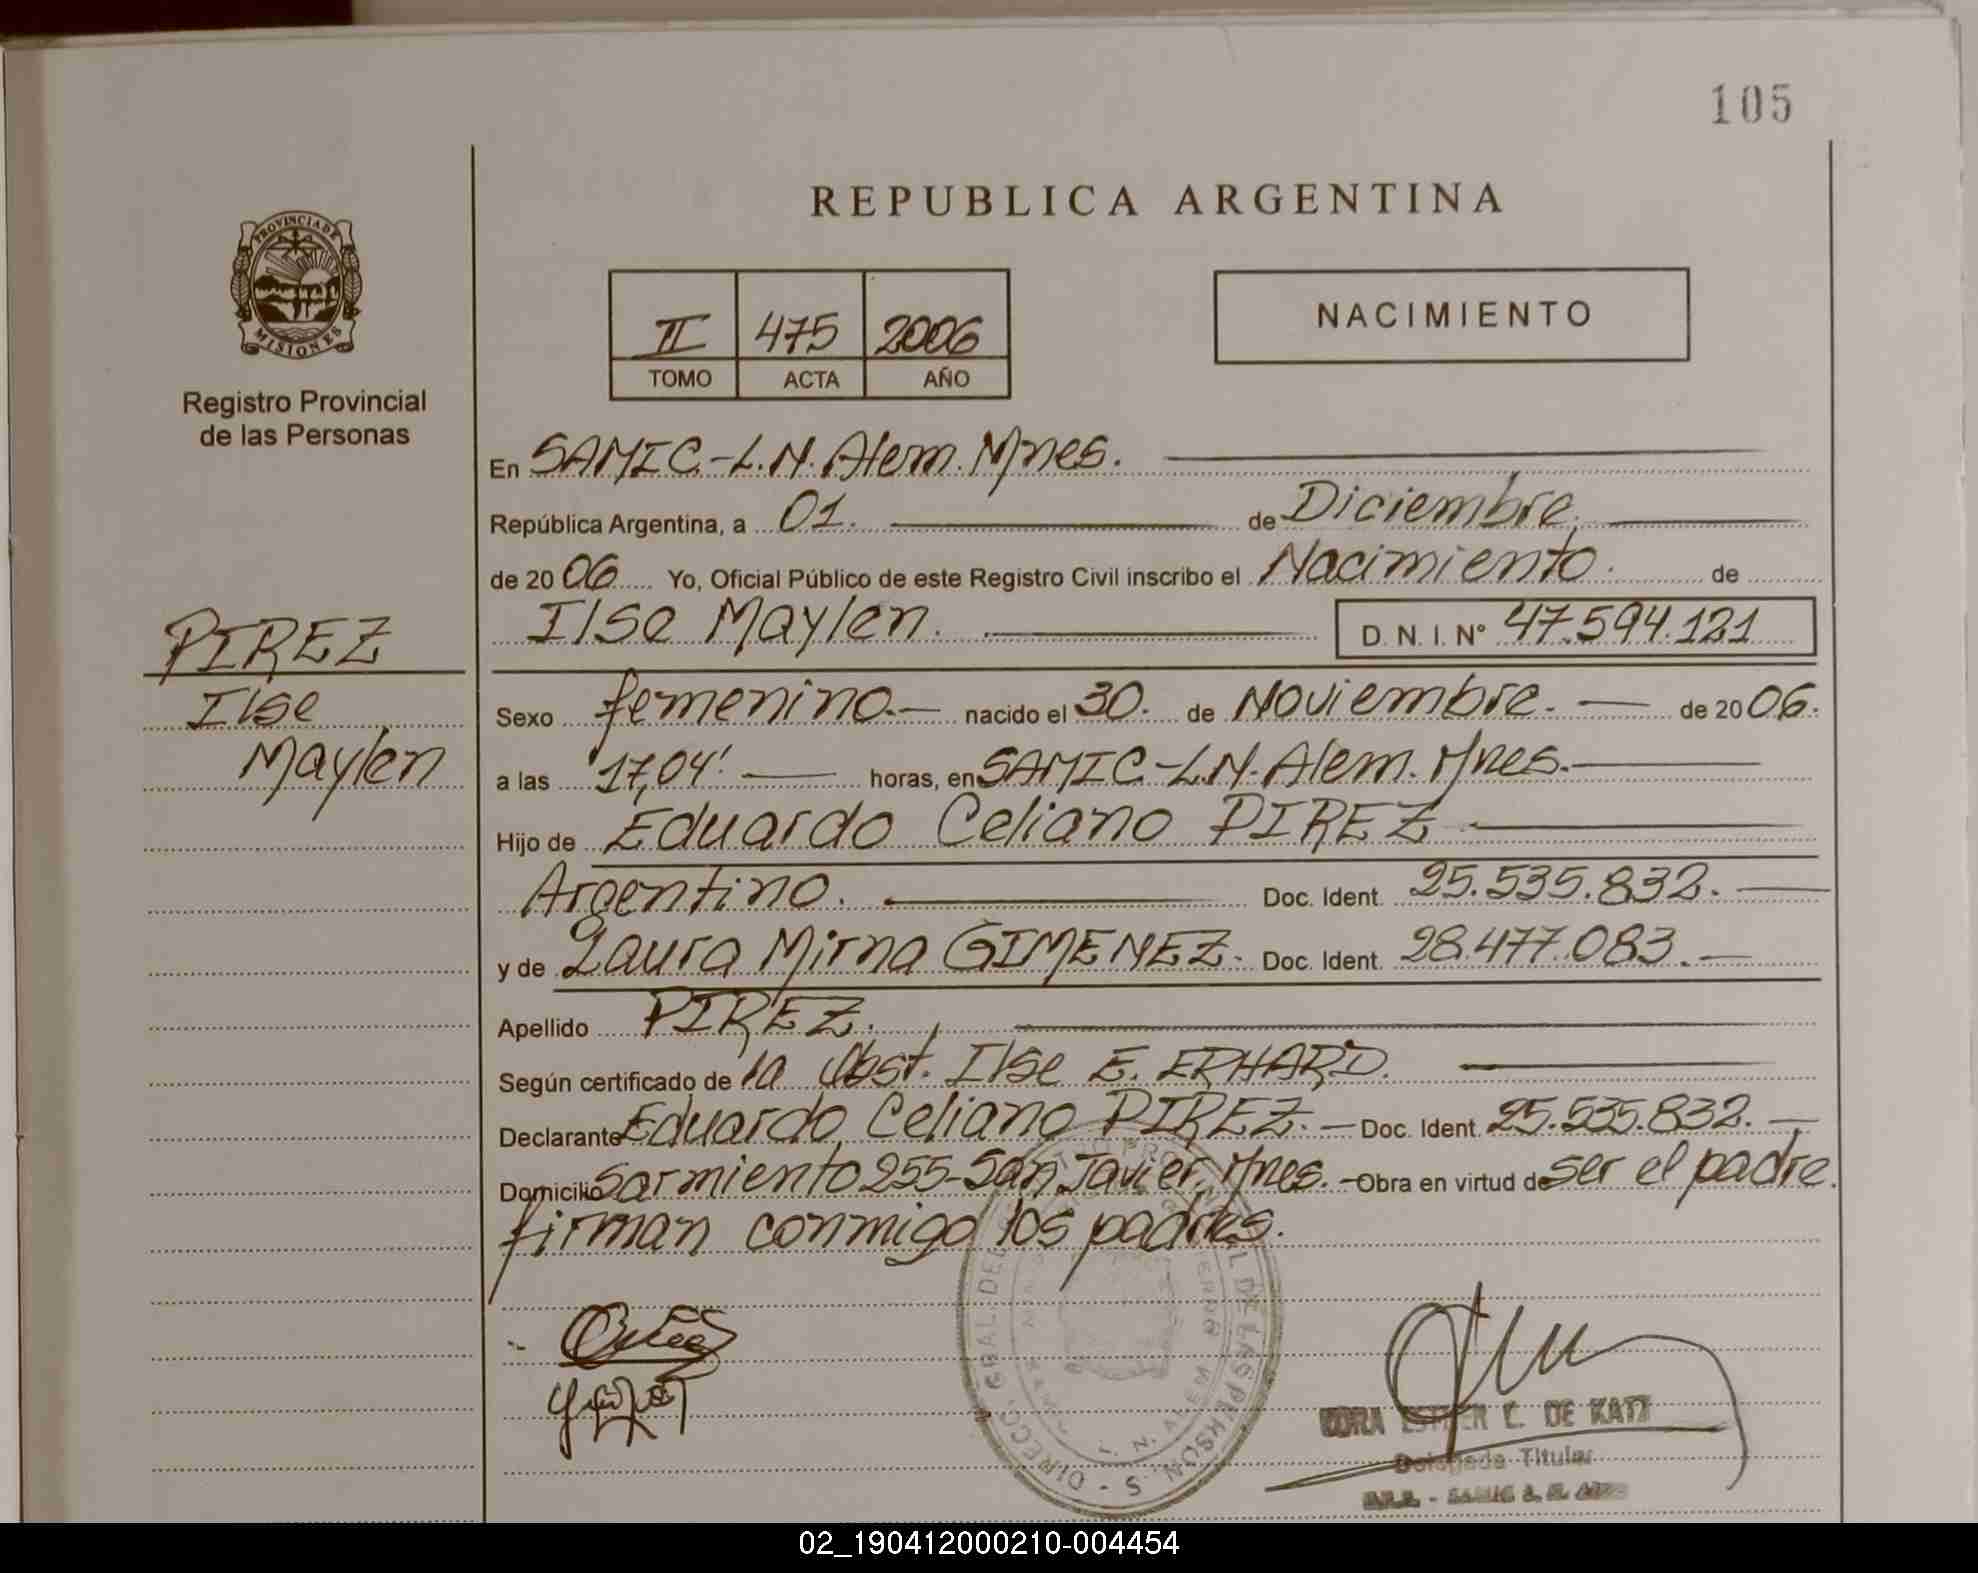 105
REPUBLICA ARGENTINA
PROVINCIA DE
MISIONES
Registro Provincial
de las Personas
II 475 2006
TOMO ACTA AÑO
NACIMIENTO
En SAMIC-L.N. Alem. Mnes.
República Argentina, a 01. de Diciembre.
de 20 06 Yo, Oficial Público de este Registro Civil inscribo el Nacimiento. de
Ilse Maylen. D. N. I. N° 47.594.121
PIREZ
Ilse
Maylen
Sexo femenino.- nacido el 30. de Noviembre. - de 20 06.
a las 17,04'. horas, en SAMIC-L.N. Alem. Mnes.-
Hijo de Eduardo Celiano PIREZ.
Argentino. Doc. Ident. 25.535.832.-
y de Laura Mirna GIMENEZ.- Doc. Ident. 28.477.083.-
Apellido PIREZ.
Según certificado de la Obst. Ilse E. ERHARD.
Declarante Eduardo Celiano PIREZ.- Doc. Ident. 25.535.832.-
Domicilio Sarmiento 255-San Javier, Mnes.- Obra en virtud de ser el padre.
firman conmigo los padres.
DIRECC. GRAL DEL DE LAS PERSONAS
L. N. ALEM
ESTHER C. DE KATZ
Delegada Titular
02_190412000210-004454